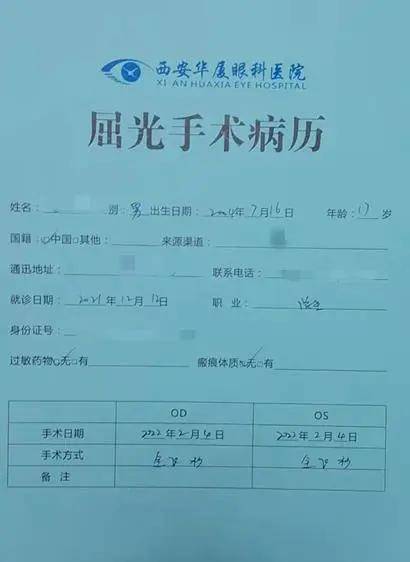 西安华厦眼科医院
XI AN HUAXIA EYE HOSPITAL
屈光手术病历
姓名: 别: 男 出生日期: 2004年7月16日 年龄: 17 岁
国籍: 中国 其他: 来源渠道:
通迅地址: 联系电话:
就诊日期: 2021年12月12日 职 业: 学生
身份证号:
过敏药物 无 有 瘢痕体质 无 有
OD OS
手术日期 2022年2月4日 2022年2月4日
手术方式 全飞秒 全飞秒
备 注